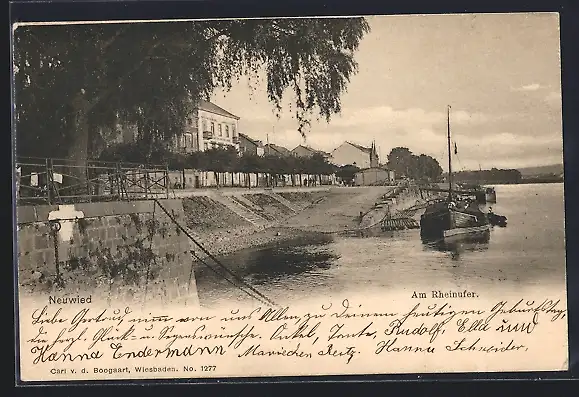 Neuwied
Am Rheinufer.
Liebe Gertrud, nimm von uns Allen zu Deinem heutigen Geburtstag,
die herzl. Glück- u. Segenswünsche. Onkel, Tante, Rudolf, Ella und
Hanna Endermann Mariechen Reitz, Hanna Schneider.
Carl v. d. Boogaart, Wiesbaden. No. 1277